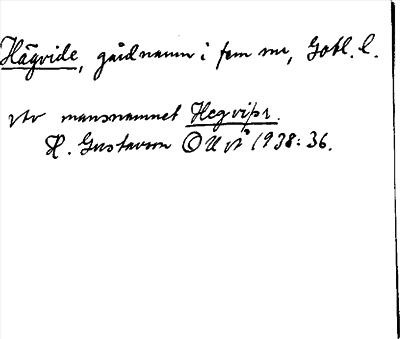 Hägvide, gårdnamn i fem sn, Gotl. l.
av mansnamnet Hegviþr.
H. Gustavson OUÅ 1938: 36.